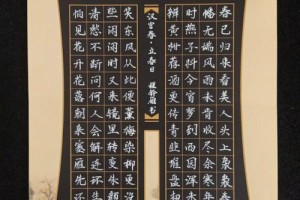 春已归来看美人头上袅袅春
幡无端风雨未肯收尽余寒年
时燕子料今宵梦到西园浑未
辦黄柑荐酒更传青韭堆盘却
汉宫春·立春日
笑东风从此便薰梅染柳更没
些闲闲时又来镜里转变朱颜
清愁不断问何人会解连环生
怕见花开花落朝来塞雁先还